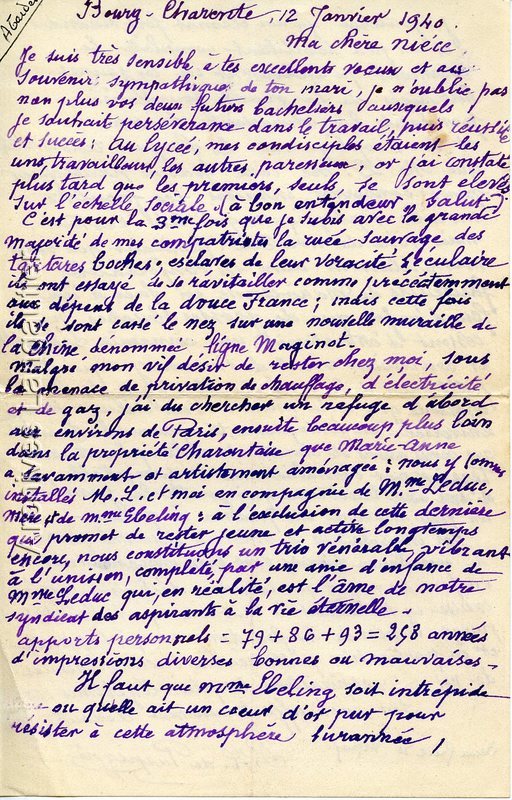 Bourg-Charente, 12 Janvier 1940.
Ma chère nièce,
Je suis très sensible à tes excellents voeux et au
souvenir sympathique de ton mari, je n'oublie pas
non plus vos deux futurs bacheliers auxquels
je souhait persévérance dans le travail, puis réussite
et succès: au lycée, mes condisciples étaient les
uns travailleurs, les autres, paresseux, or j'ai constaté
plus tard que les premiers, seuls, se sont élevés
sur l'échelle sociale. (à bon entendeur salut)
C'est pour la 3me fois que je subis avec la grande
majorité de mes compatriotes la ruée sauvage des
tartares boches; esclaves de leur voracité séculaire
ils ont essayé de se ravitailler comme précédemment
aux dépens de la douce France; mais cette fois
ils se sont cassé le nez sur une nouvelle muraille de
la Chine, dénommée ligne Maginot.
Malgré mon vif désir de rester chez moi, sous
la menace de privation de chauffage, d'électricité
et de gaz, j'ai du chercher un refuge d'abord
aux environs de Paris, ensuite beaucoup plus loin
dans la propriété Charentaise que Marie-Anne
a savamment et artistement aménagée: nous y sommes
installés M. L. et moi en compagnie de Mme Leduc,
mère de Mme Ebeling: à l'exclusion de cette dernière
qui promet de rester jeune et active longtemps
encore, nous constituons un trio vénérable, vibrant
à l'unisson, complété par une amie d'enfance de
Mme Leduc qui, en réalité, est l'âme de notre
syndicat des aspirants à la vie éternelle.
apports personnels = 79 + 86 + 93 = 258 années
d'impressions diverses bonnes ou mauvaises.
Il faut que Mme Ebeling soit intrépide
ou quelle ait un coeur d'or pur pour
résister à cette atmosphère surannée,